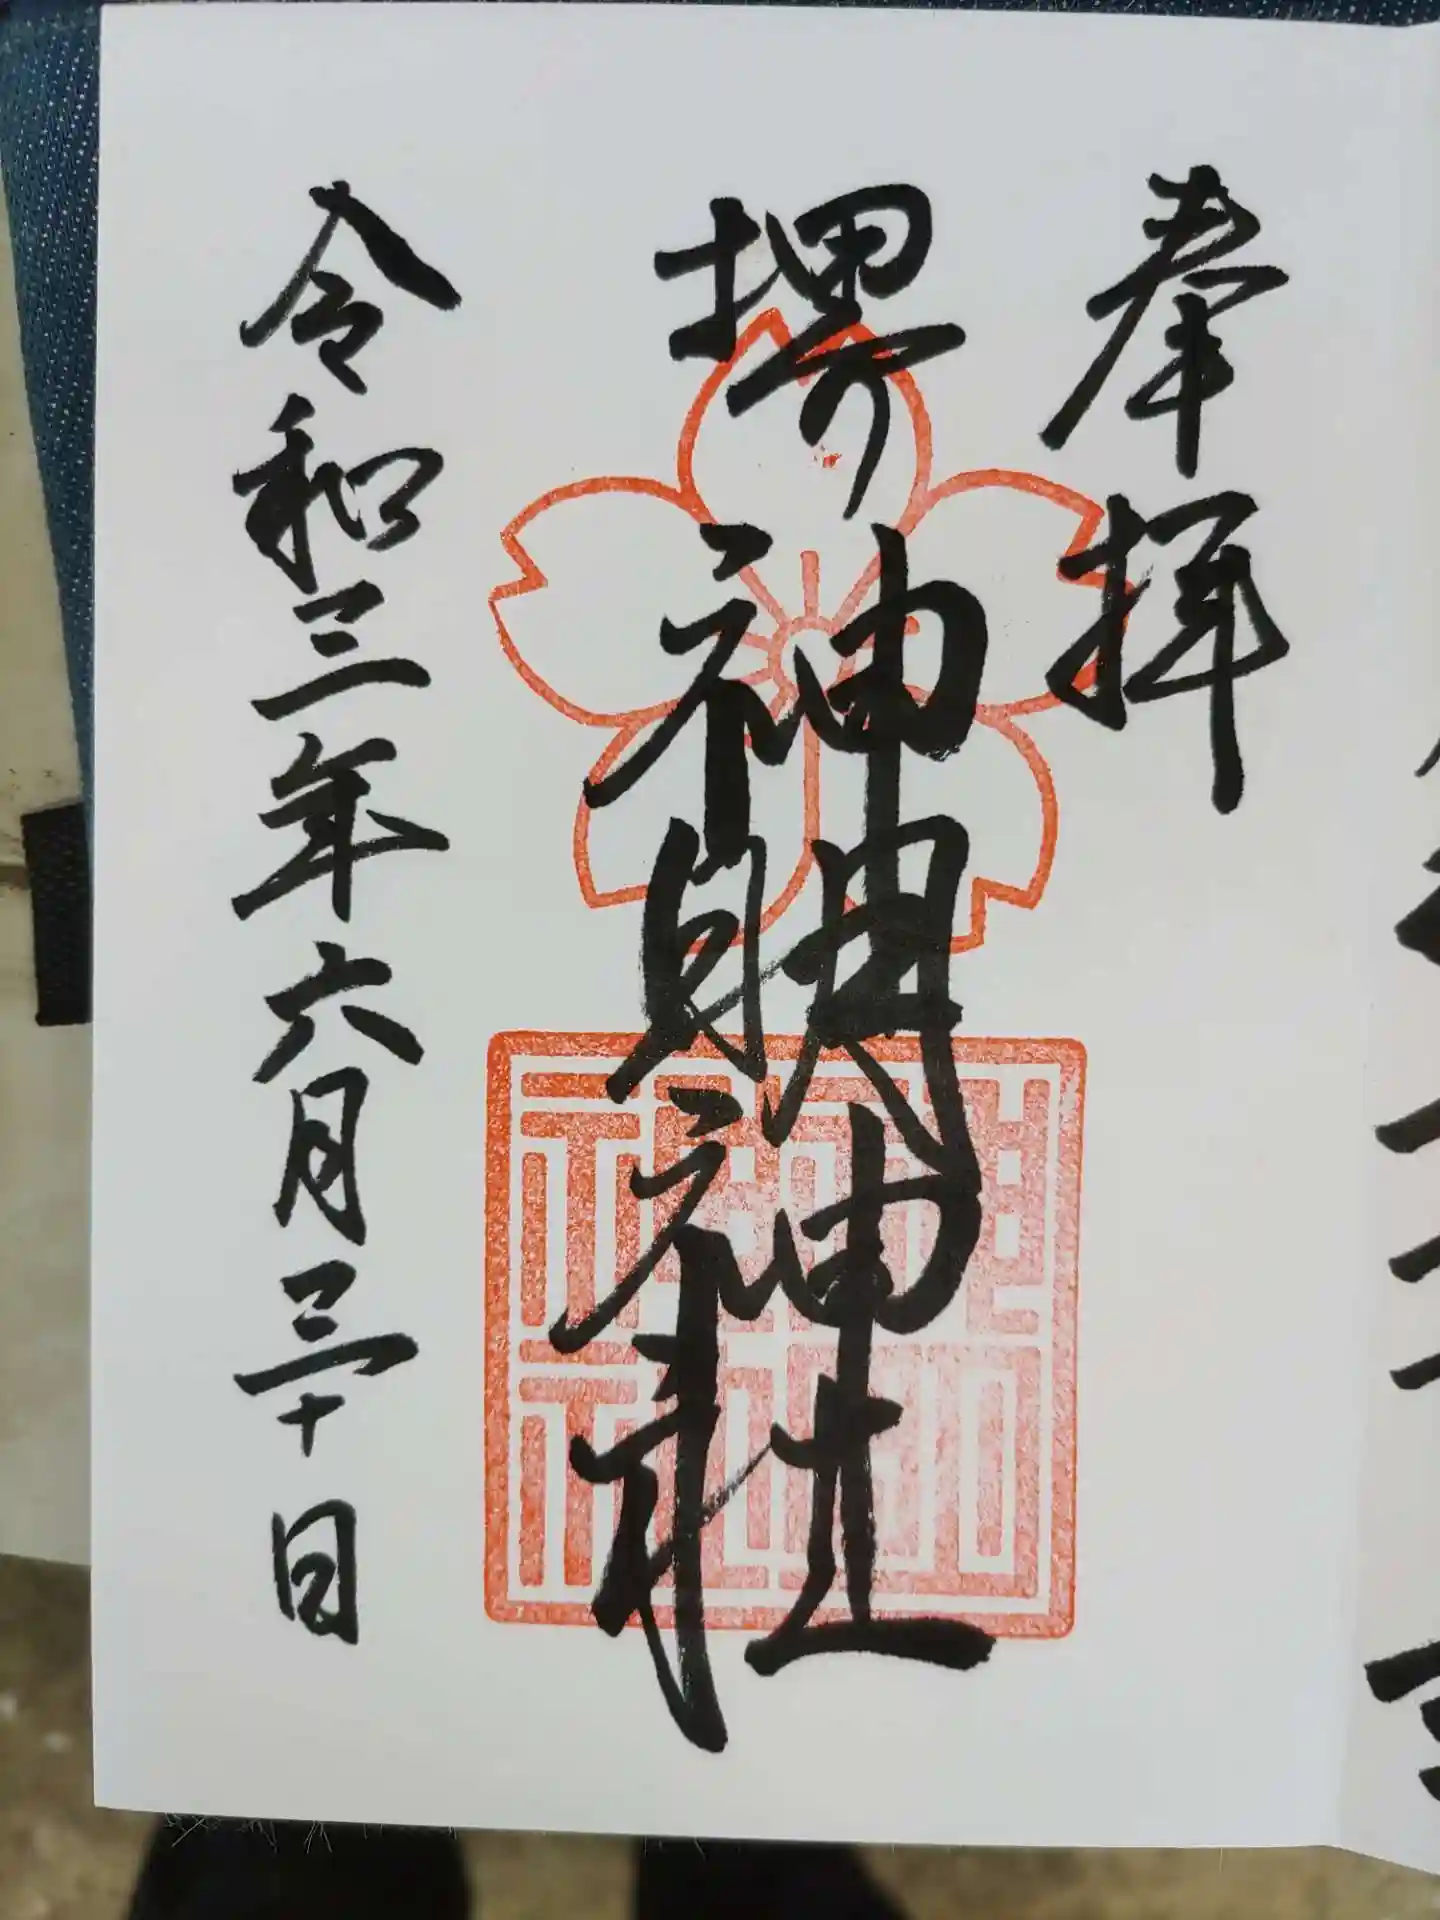 奉拝
堺神明神社
令和三年六月三十日